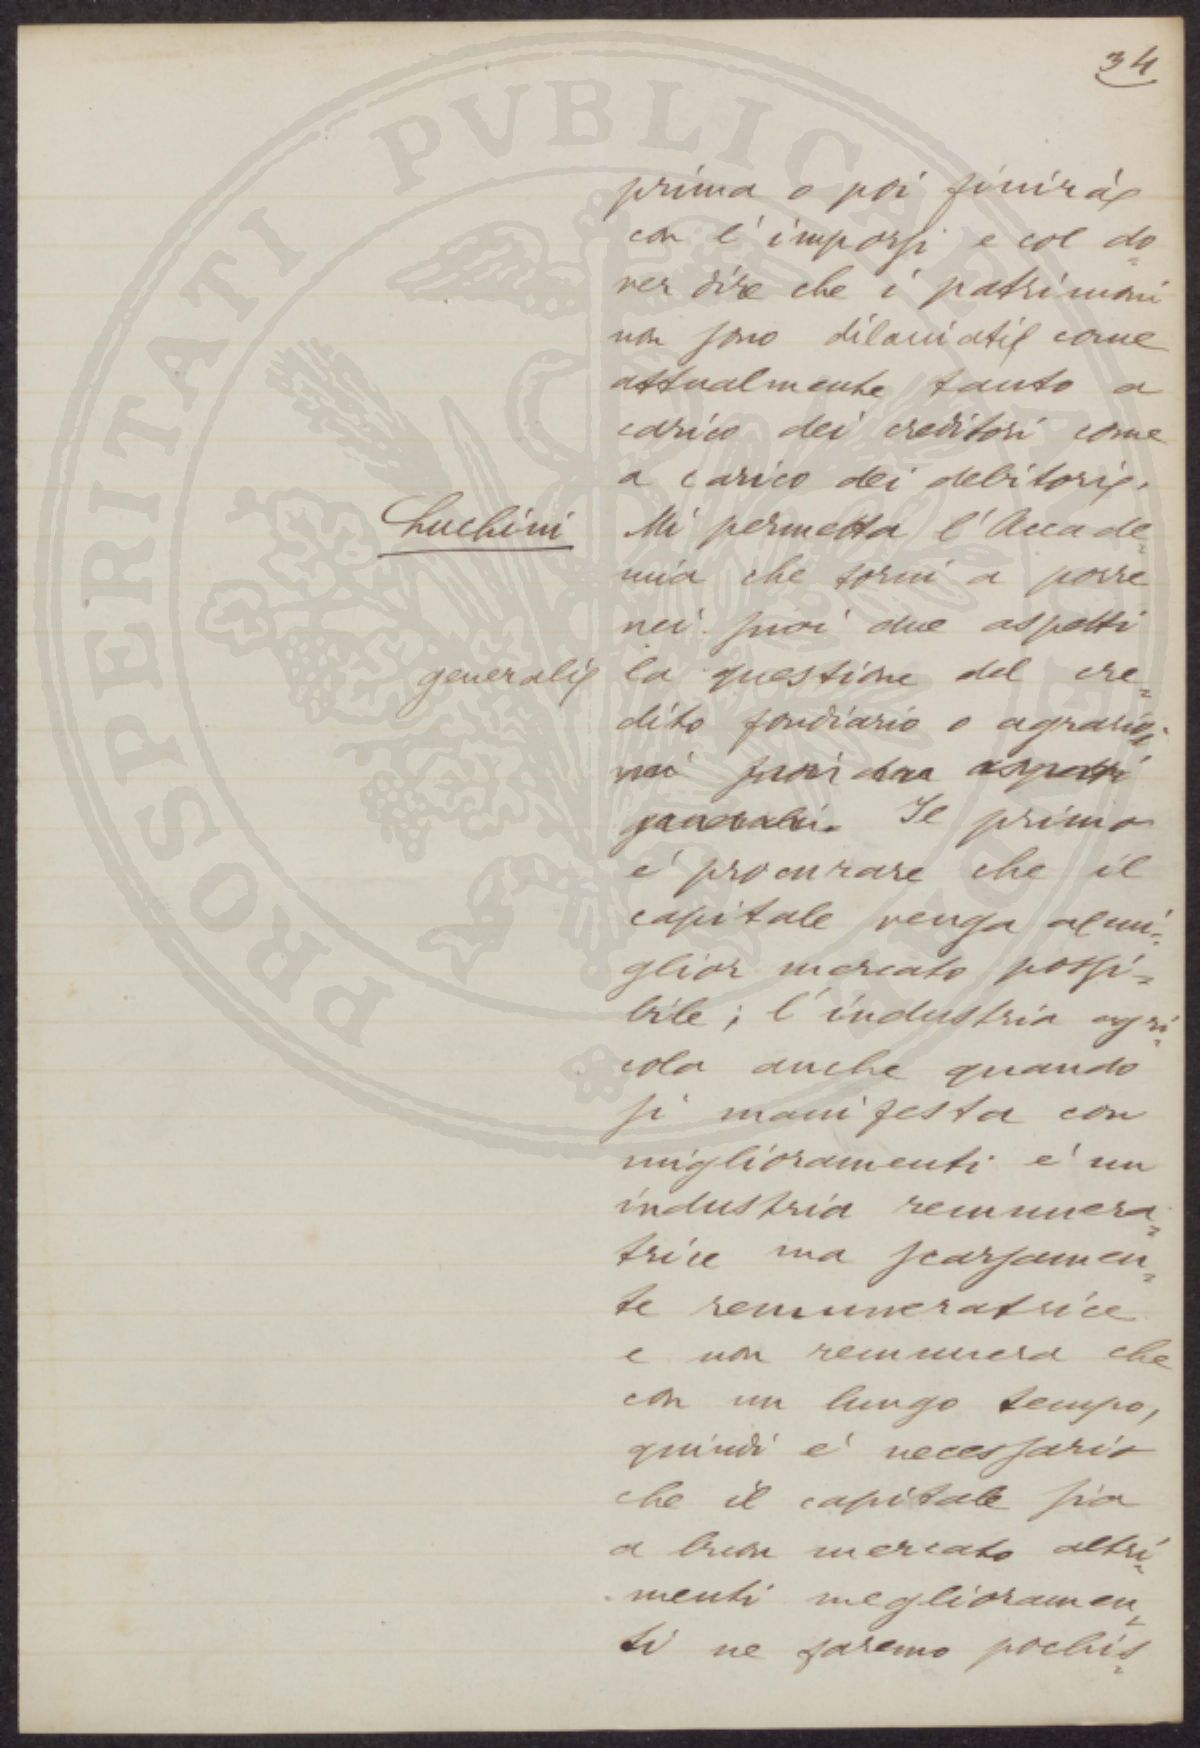 34
prima o poi finirà
con l'imporsi e col do=
ver dire che i patrimoni
non sono dilaniati come
attualmente tanto a
carico dei creditori come
a carico dei debitori.
Luchini Mi permetta l'Accade=
mia che torni a porre
nei suoi due aspetti
generali la questione del cre=
dito fondiario o agrario;
nei suoi due aspetti
generali. Il primo
e' procurare che il
capitale venga al mi=
glior mercato possi=
bile; l'industria agri=
cola anche quando
si manifesta con
miglioramenti e' un
industria remunera=
trice ma scarsamen=
te remuneratrice
e non remunera che
con un lungo tempo,
quindi e' necessario
che il capitale sia
a buon mercato altri=
menti meglioramen=
ti ne faremo pochis=
PROSPERITATI PVBLICAE AVGENDAE